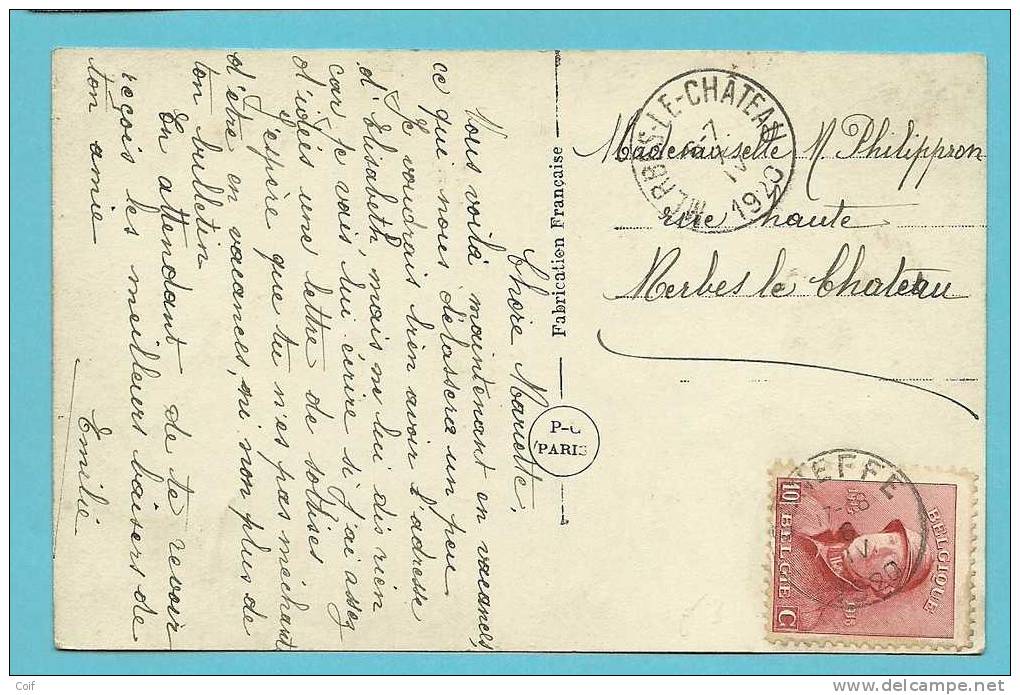 Chère Mariette,
Vous voilà maintenant en vacances,
ce qui nous délassera un peu
Je voudrais bien avoir l'adresse
d'Elisabeth, mais ne lui dis rien
car je vais lui écrire si j'ai assez
d'idées une lettre de sottises
J'espère que tu n'es pas méchant
d'être en vacances, ni non plus de
ton bulletin
En attendant de te revoir
reçois les meilleurs baisers de
ton amie
Emilie
Fabrication Française
P-C
PARIS
MERBES-LE-CHÂTEAU
6-7
IV
1920
Mademoiselle M Philippron
rue haute
Merbes le Chateau
NEFFE
7-8
V
BELGIQUE
BELGIE
10 C
Coif
delcampe.net